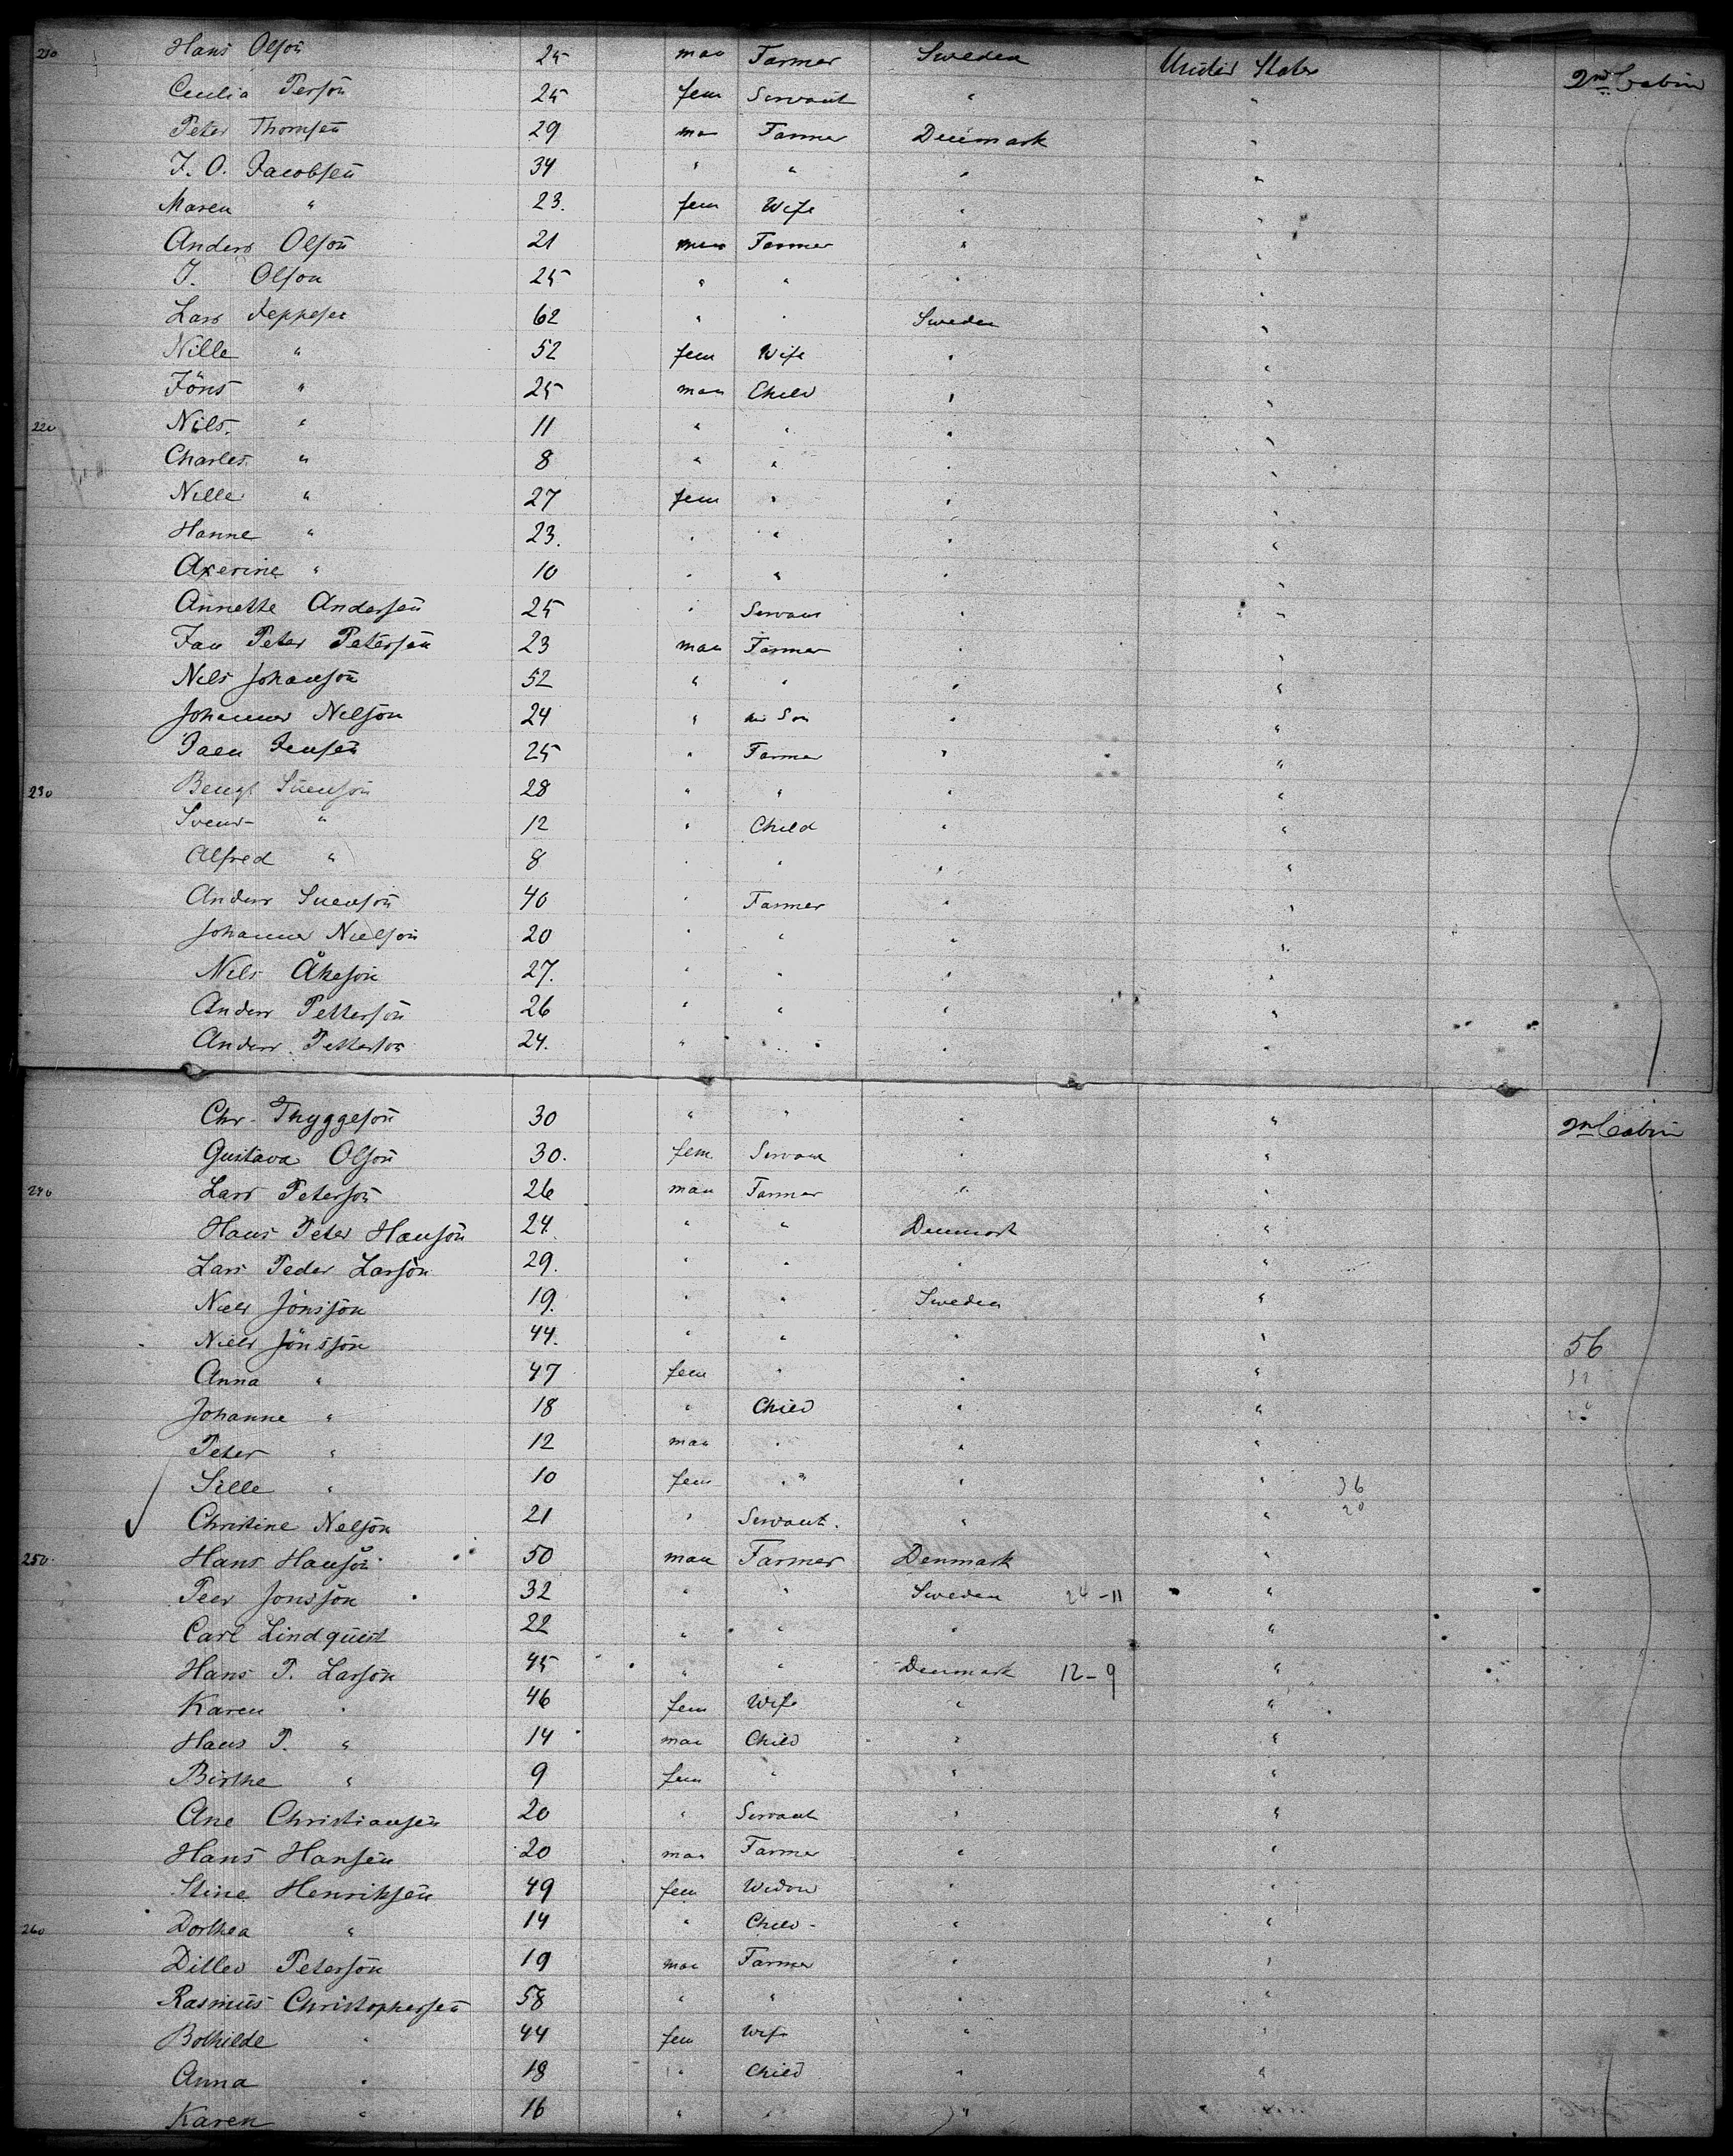 210 Hans Olson 25 man Farmer Sweden United States 2nd Cabin
Cecilia Person 25 fem Servant " "
Peter Thomsen 29 man Farmer Denmark "
J. O. Jacobsen 34 " " " "
Maren " 23. fem Wife " "
Anders Olson 21 man Farmer " "
J. Olson 25 " " " "
Lars Jeppesen 62 " " Sweden "
Nille " 52 fem Wife " "
Jöns " 25 man Child " "
220 Nils " 11 " " " "
Charles " 8 " " " "
Nille " 27 fem " " "
Hanne " 23. " " " "
Axerine " 10 " " " "
Annette Andersen 25 " Servant " "
Jan Peter Petersen 23 man Farmer " "
Nels Johanson 52 " " " "
Johannes Nelson 24 " his Son " "
Jensen 25 " Farmer " "
230 Bengt Svenson 28 " " " "
Svend " 12 " Child " "
Alfred " 8 " " " "
Anders Svenson 40 " Farmer " "
Johannes Nielson 20 " " " "
Nils Åkeson 27. " " " "
Anders Petterson 26 " " " "
Anders Petterson 24. " " " "
Chr. Thyggeson 30 " " " " 2nd Cabin
Gustava Olson 30. fem Servant " "
240 Lars Peterson 26 man Farmer " "
Hans Peter Hanson 24 " " Denmark "
Lars Peder Larson 29. " " " "
Niels Jönsson 19. " " Sweden "
Niels Jönsson 44. " " " " 56
Anna " 47 fem " " "
Johanne " 18 " Child " "
Peter " 12 man " " "
Sille " 10 fem " " " 36
Christine Nelson 21 " Servant. " " 20
250 Hans Hanson 50 man Farmer Denmark "
Peer Jonsson 32 " " Sweden 24-11 "
Carl Lindquist 22 " " " "
Hans P. Larson 45 " " Denmark 12-9 "
Karen " 46 fem Wife " "
Hans P. " 14 man Child " "
Birthe " 9 fem " " "
Ane Christiansen 20 " Servant " "
Hans Hansen 20 man Farmer " "
Stine Henriksen 49 fem Widow " "
260 Dorthea " 14 " Child " "
Ditlev Peterson 19 man Farmer " "
Rasmus Christophersen 58 " " " "
Bothilde " 44 fem Wife " "
Anna " 18 " Child " "
Karen " 16 " " " "